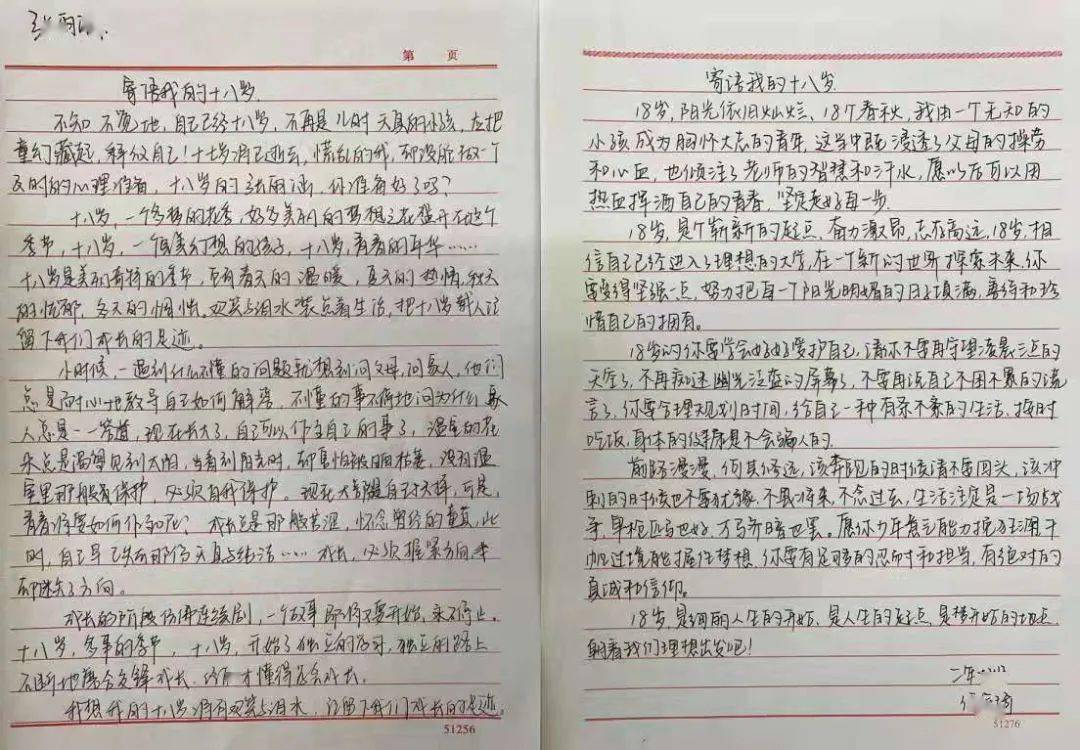 第 页
寄语我的十八岁
不知不觉地,自己已经十八岁,不再是儿时天真的小孩,应把
童幻藏起,释放自己!十七岁消已逝去,慌乱的我,却没能做一个
及时的心理准备,十八岁的张雨涵,你准备好了吗?
十八岁,一个多梦的花季,好多美丽的梦想之花盛开在这个
季节,十八岁,一个美幻想的孩子,十八岁,青春的年华……
十八岁是美丽奇特的季节,它有春天的温暖,夏天的热情,秋天
的忧郁,冬天的惆怅。欢笑与泪水装点着生活,把十八岁载入
留下我们成长的足迹。
小时候,一遇到什么不懂的问题就想到问父母,问家人,他们
总是耐心地教导自己如何解答,不懂的事不停地问为什么,家
人总是一一答道,现在长大了,自己可以作主自己的事了,温室的花
朵总是渴望见到太阳,当看到阳光时,却害怕被晒枯萎,没有温
室里那般有保护,必须自我保护。现在大了,可是,
青春将要如何作 成长总是那般苦涩,怀念曾经的童真,此
时,自己早已失去那份天真与纯洁……成长,必须握紧方向,
却迷失了方向。
成长的阶段仿佛连续剧,一个故事即将要开始,永不停止。
十八岁,多事的季节,十八岁,开始了独立的,独立的路上
不断地磨合交锋成长,你才懂得怎会成长。
我想我的十八岁将有欢笑与泪水,记留下我们成长的足迹。
51256
寄语我的十八岁
18岁,阳光依旧灿烂、18个春秋,我由一个无知的
小孩成为胸怀大志的青年,这当中既浸透了父母的操劳
和心血,也倾注了老师的智慧和汗水,愿以后可以用
热血挥洒自己的青春,坚定走好每一步。
18岁,是个崭新的起点,奋力激昂,志存高远,18岁,相
信自己已经进入了理想的大学,在一个新的世界探索未来,你
要变得坚强一点,努力把每一个阳光明媚的日子填满,善待和珍
惜自己的拥有。
18岁的你要学会好好爱护自己,请你不要再守望凌晨三点的
天空了,不再痴迷幽光泛蓝的屏幕了,不要再说自己不困不累的谎
言了,你要合理规划时间,给自己一种有条不紊的生活,按时
吃饭,身体的健康是不会骗人的。
前路漫漫,何其修远,该奔跑的时候请不要回头,该冲
刺的时候也不要犹豫,不畏将来,不念过去,生活注定是一场战
争,单枪匹马也好,万马齐喑也罢。愿你少年意气能力挽狂澜于
加过境能握住梦想,你要有足够的忍耐和担当,有绝对的
真诚和信仰。
18岁,是绚丽人生的开始,是人生的起点,是梦开始的地点,
朝着我们理想出发吧!
51276